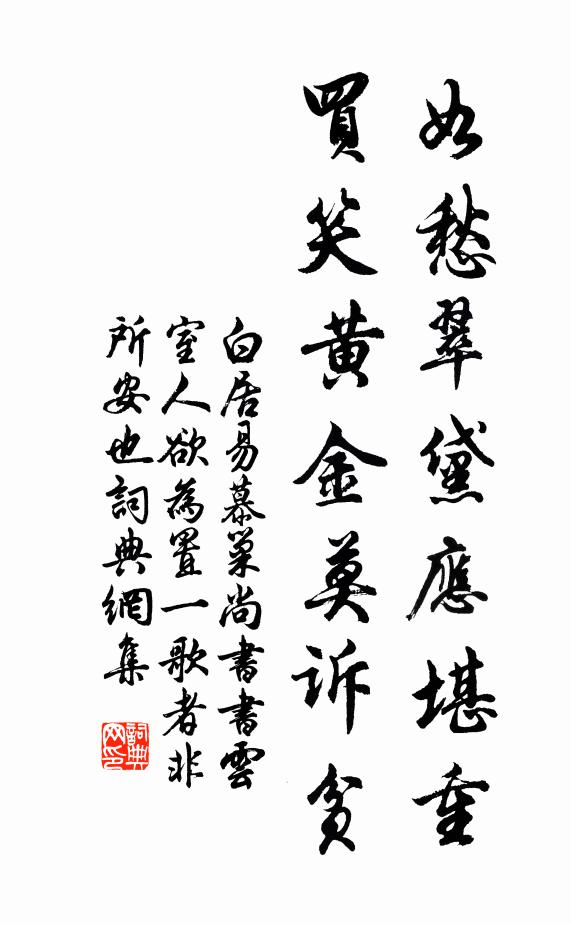 如愁翠黛應堪重
買笑黄金莫訴貧
白居易慕巢尚書書雲
室人欲為置一歌者非
所安也詞典網集
詞典
网印